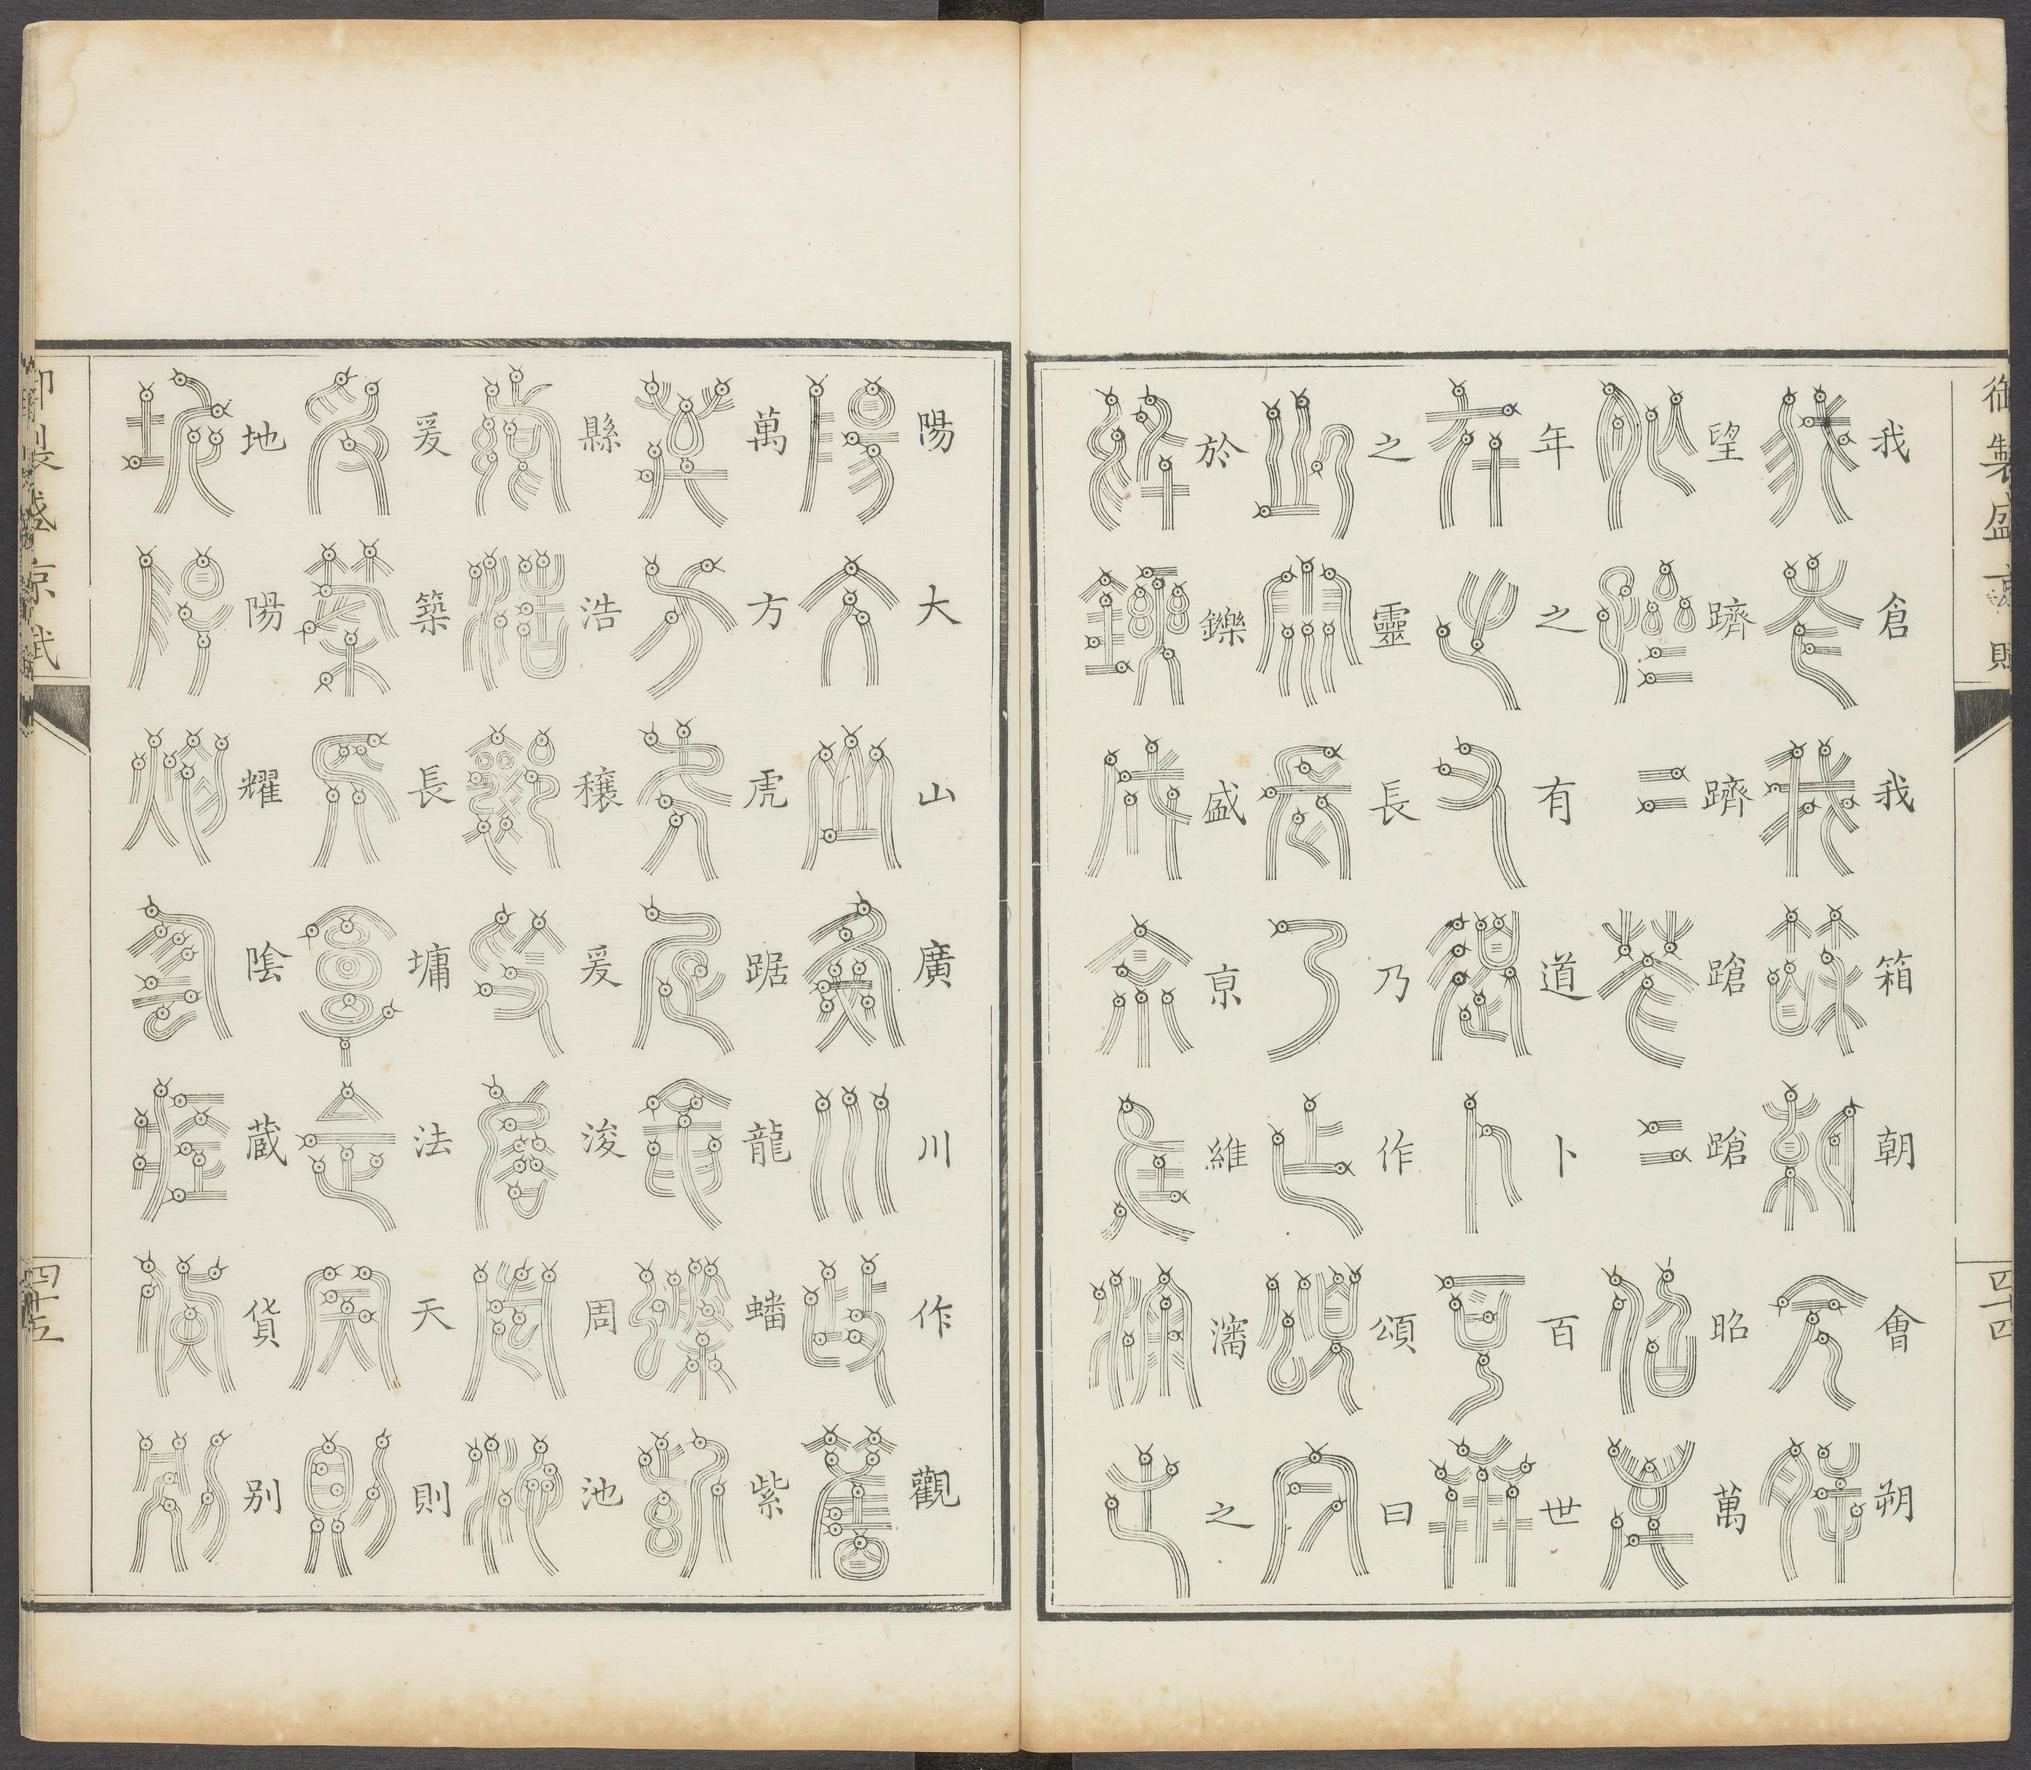 御製盛京賦
四十四
我倉我箱朝會朔
望蹟蹟蹌蹌昭萬
年之有道卜百世
之靈長乃作頌曰
於鑠盛京維瀋之
陽大山廣川作觀
萬方虎踞龍蟠紫
縣浩穰爰浚周池
爰築長墉法天則
地陽耀陰蔵貨别
御製盛京賦
四十五